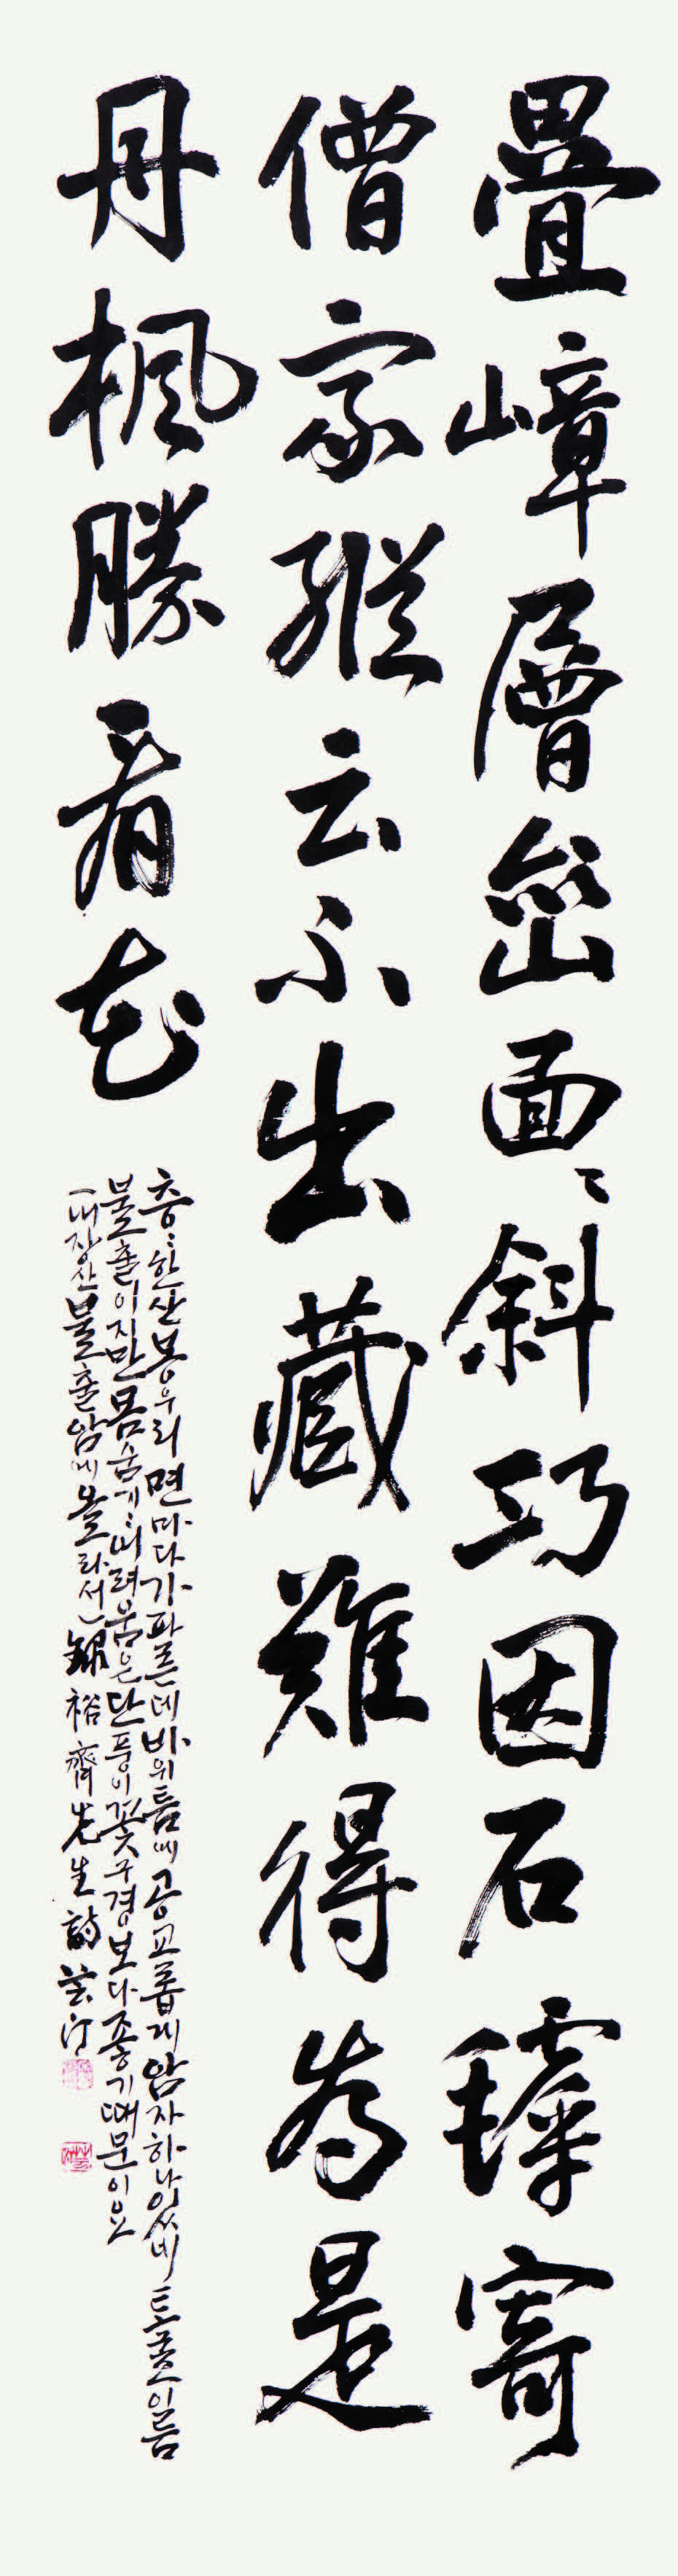 疊嶂層巒面〻斜巧因石罅寄
僧家縱云不出藏難得為是
丹楓勝看花
층〻한 산봉우리 면마다 가파른데 바위틈에 공교롭게 암자 하나 있네 토굴 이름
불출이지만 몸 숨기〻 어려움은 단풍이 꽃구경보다 좋기 때문이요
(내장산 불출암에 올라서) 錄裕齋先生詩 芸汀